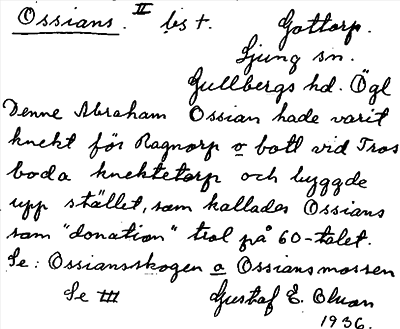 Ossians. II bs t. Gottorp.
Ljung sn.
Gullbergs hd. Ögl
Denne Abraham Ossian hade varit
knekt för Ragnorp o bott vid Tros
boda knektetorp och byggde
upp stället, som kallades Ossians
som "donation" trol på 60-talet.
Se: Ossiansskogen o Ossiansmossen
Se III Gustaf E. Olson
1936.